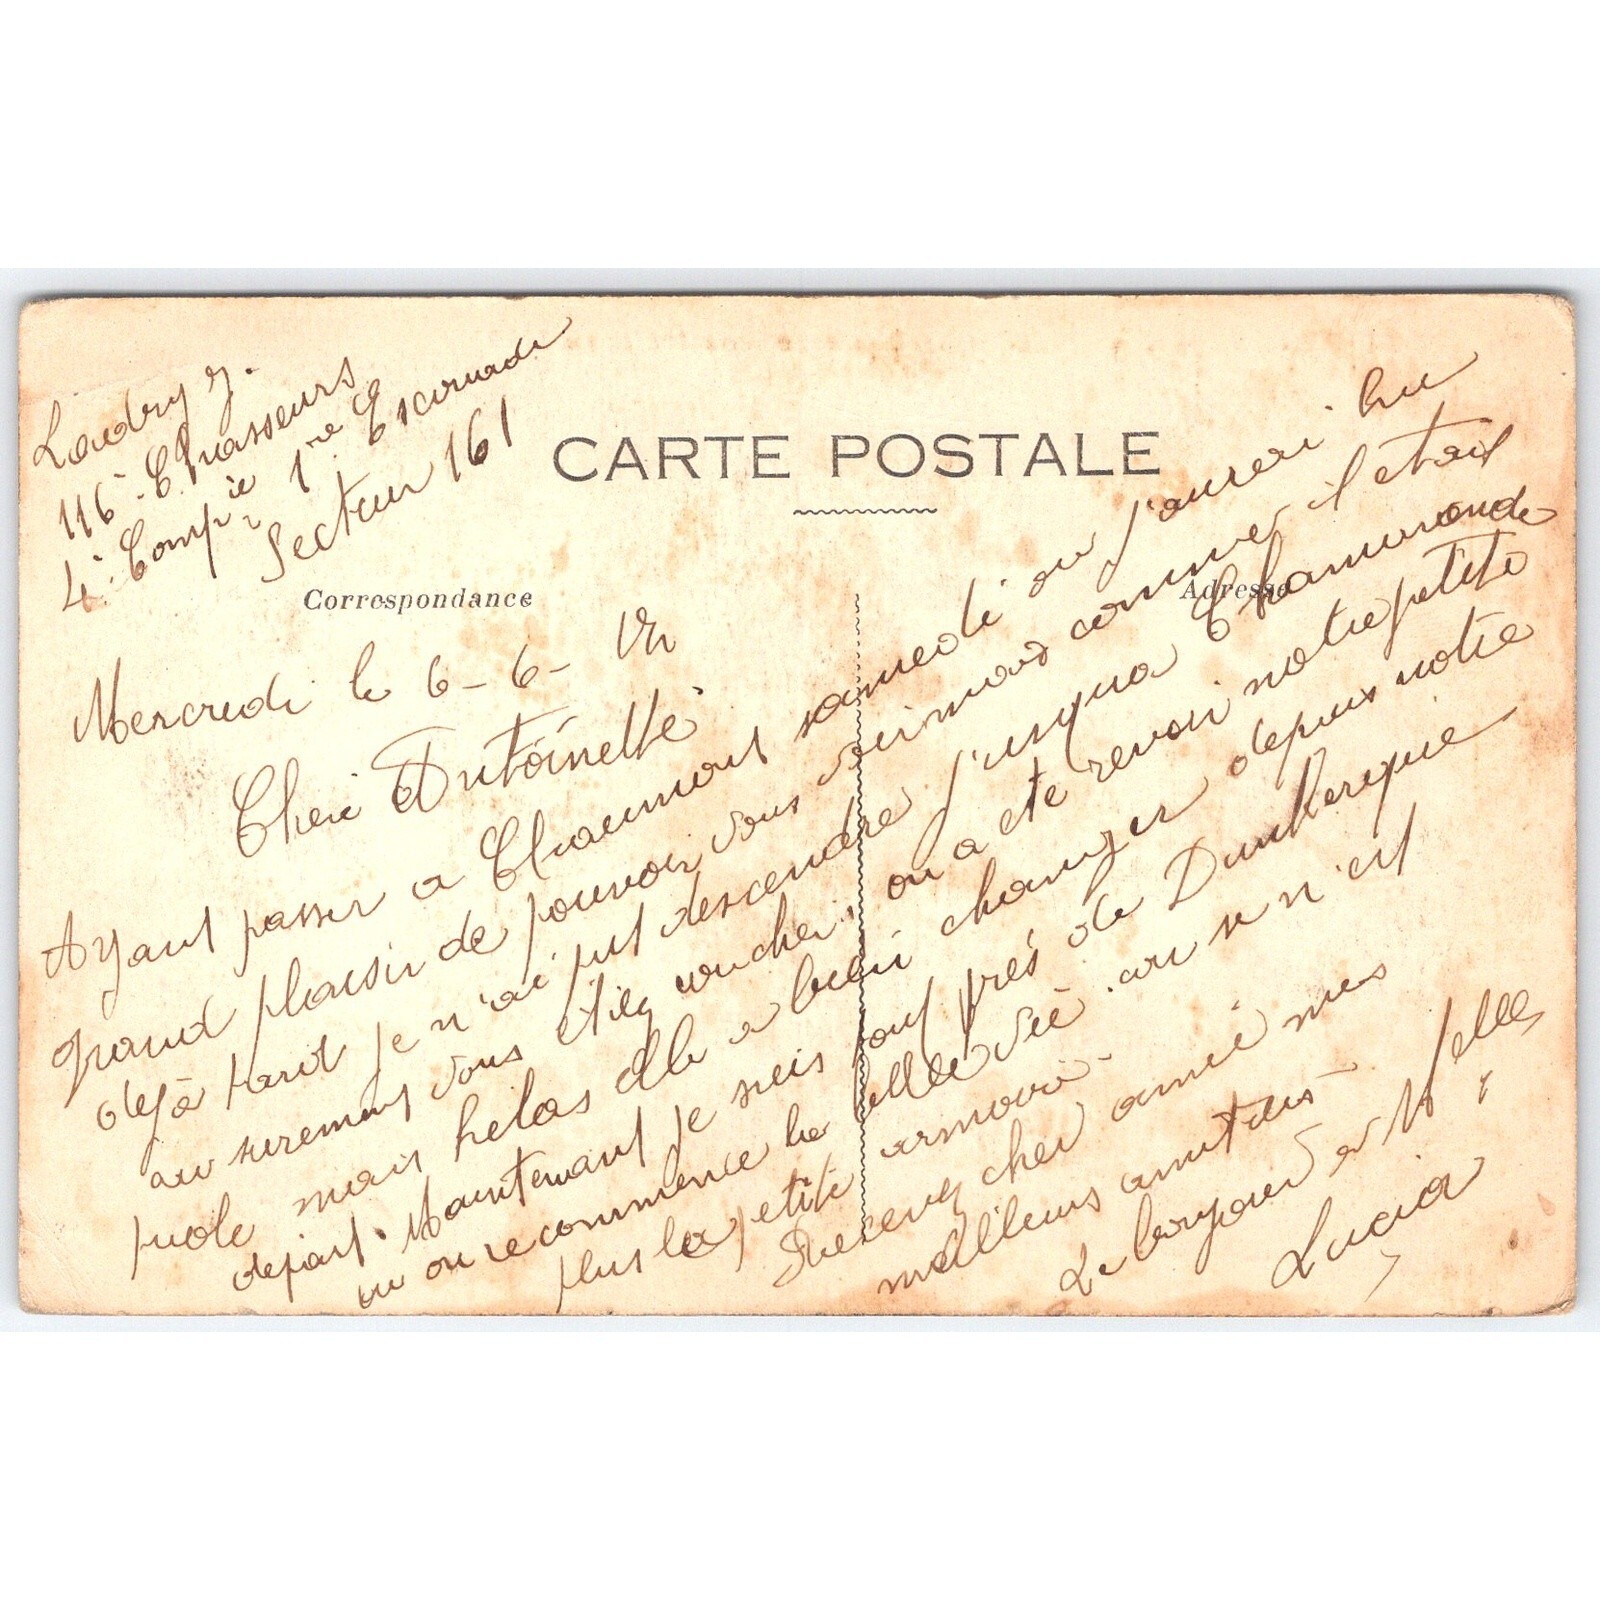 Landry J.
116e Chasseurs
4e Compie 1ère Escouade
Secteur 161
CARTE POSTALE
Correspondance
Adresse
Mercredi le 6-6-
Cher Antoinette
Ayant passer a Chaumont samedi ou j'aurai bu
grand plaisir de pouvoir vous mais comme il etait
dejà tard je n'ai put descendre j'usqua Chamarande
au surement vous étiez coucher, on a eté revoir notre petite
piole mais helas elle a bien changer depuis notre
depart. Maintenant je suis tout près de Dunkerque
ou on recommence la belle vie. ou se n'est
plus la petite armoire.
Recevez cher amie mes
meilleurs amitiés
Le bonjour a Melle
Lucia